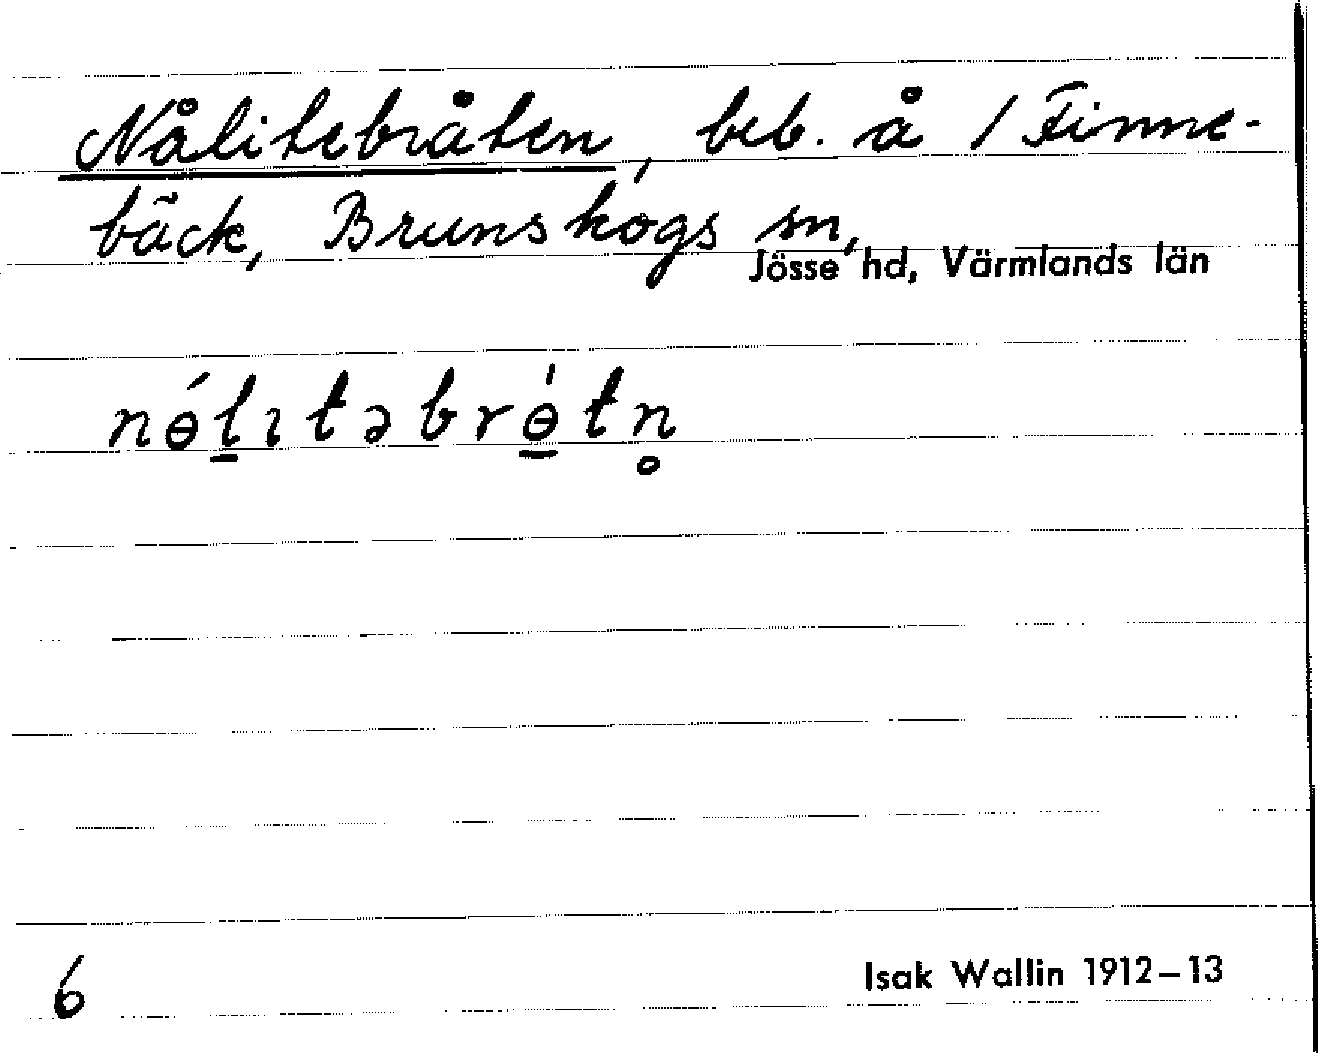 Nålitebråten, beb. å / Finne-
bäck, Brunskogs sn,
Jösse hd, Värmlands län
nɵ́l̠ɩtəbrɵ̠̍tn̥
6
Isak Wallin 1912–13